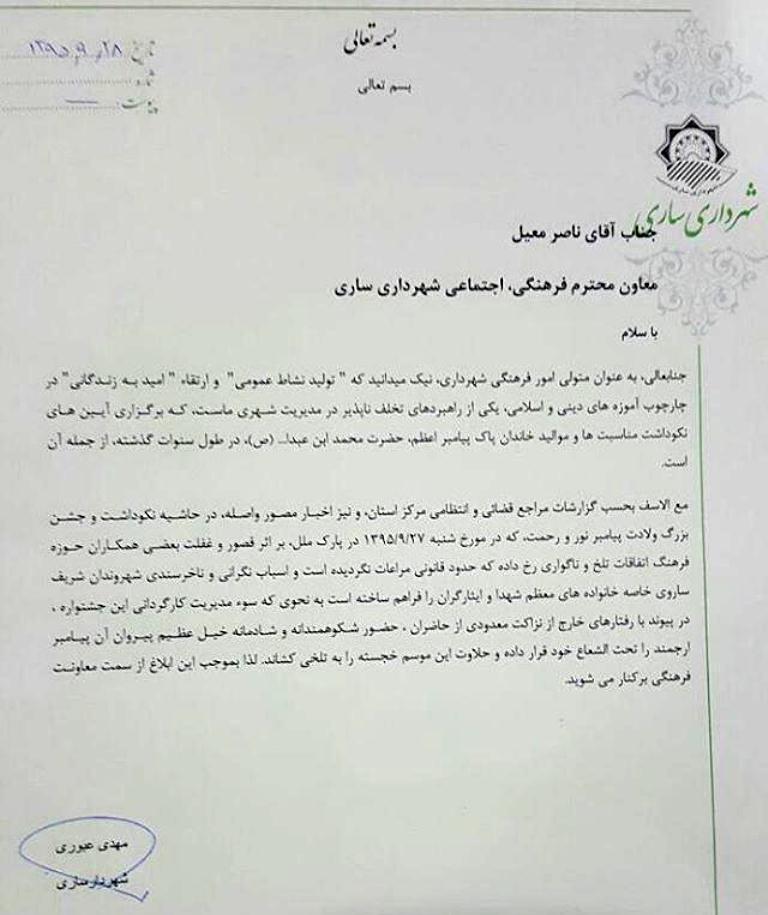 بسمه تعالی
تاریخ ۱۳۹۵٫۹٫۲۸
شماره
پیوست
بسم تعالی
شهرداری ساری
جناب آقای ناصر معیل
معاون محترم فرهنگی، اجتماعی شهرداری ساری
با سلام
جنابعالی، به عنوان متولی امور فرهنگی شهرداری، نیک میدانید که " تولید نشاط عمومی" و ارتقاء " امید به زندگانی" در
چارچوب آموزه های دینی و اسلامی، یکی از راهبردهای تخلف ناپذیر در مدیریت شهری ماست، که برگزاری آیین های
نکوداشت مناسبت ها و موالید خاندان پاک پیامبر اعظم، حضرت محمد ابن عبدا... (ص)، در طول سنوات گذشته، از جمله آن
است.
مع الاسف بحسب گزارشات مراجع قضائی و انتظامی مرکز استان، و نیز اخبار مصور واصله، در حاشیه نکوداشت و جشن
بزرگ ولادت پیامبر نور و رحمت، که در مورخ شنبه ۱۳۹۵/۹/۲۷ در پارک ملل، بر اثر قصور و غفلت بعضی همکاران حوزه
فرهنگ اتفاقات تلخ و ناگواری رخ داده که حدود قانونی مراعات نگردیده است و اسباب نگرانی و ناخرسندی شهروندان شریف
ساروی خاصه خانواده های معظم شهدا و ایثارگران را فراهم ساخته است به نحوی که سوء مدیریت کارگردانی این جشنواره ،
در پیوند با رفتارهای خارج از نزاکت معدودی از حاضران ، حضور شکوهمندانه و شادمانه خیل عظیم پیروان آن پیامبر
ارجمند را تحت الشعاع خود قرار داده و حلاوت این موسم خجسته را به تلخی کشاند. لذا بموجب این ابلاغ از سمت معاونت
فرهنگی برکنار می شوید.
مهدی عبوری
شهردار ساری